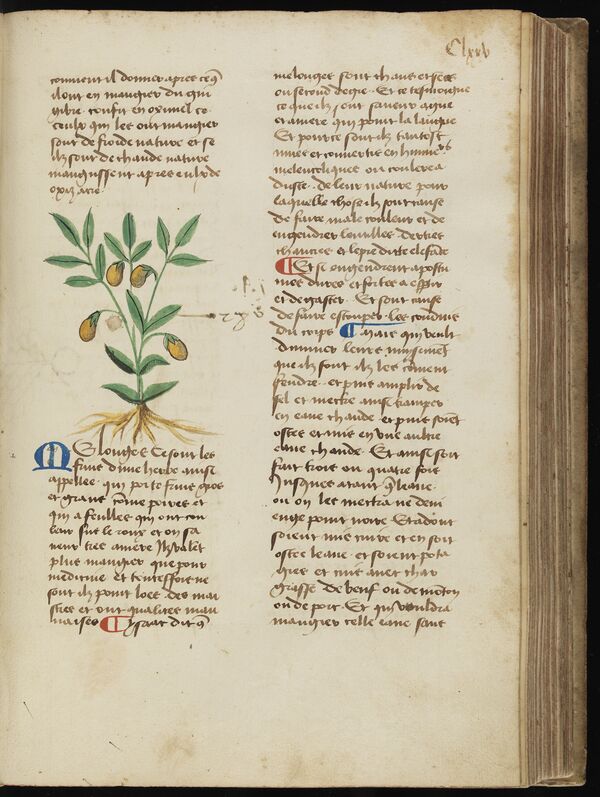 Clxxv
convient il donner apres ce q̄
il ont en mangier du gin
gibre confit en oximel ce
ceulx qui les ont mangier
sont de froide nature et se
ilz sont de chaude nature
mangussent apres
oxizacre
Melonges Ce sont les
fruis d'une herbe ainsi
appellee qui porte fruis gros
et grans cōme poires et
qui a feulles qui ont cou
leur sur le roux et on sa
veur tres amere Ilz valēt
plus mangier que pour
medicine et toutesfois ne
sont ilz point loez des mai
stres et ont qualitez mau
vaises Ysaac dit q̄
melonges sont chaus et secs
ou second degre Et ce tesmongne
ce que ilz sont saveur ague
et amere qui point la langue
Et pour ce sont ilz tantost
mues et convertis en humeᵘʳˢ
melencoliques ou coulere a
duste de leur nature pour
laquelle chose ilz sont cause
de faire male couleur et de
engendrer lentilles
chancres et lepre ditte elefāce
Et si engendrent apostu
mes dures et fortes a
et degaster Et sont cause
de faire estouper les conduis
du corps Mais qui veult
donner leurs nuisemēt
que ilz font il les cōvient
fendre et puis amplir de
sel et mettre ainsi tramper
en eaue chaude et puis soiēt
ostes et mis en une aultre
eaue chaude Et ainsi soit
fait trois ou quatre fois
jusques atant q̄ leaue
ou on les mettra ne devi
enge point noire Et adont
soient mis cuire et en soit
ostee leaue et soient pota
gies et cuis avec char
grasse de beuf ou de mouton
ou de porc Et qui vouldra
mangier celle eaue sans